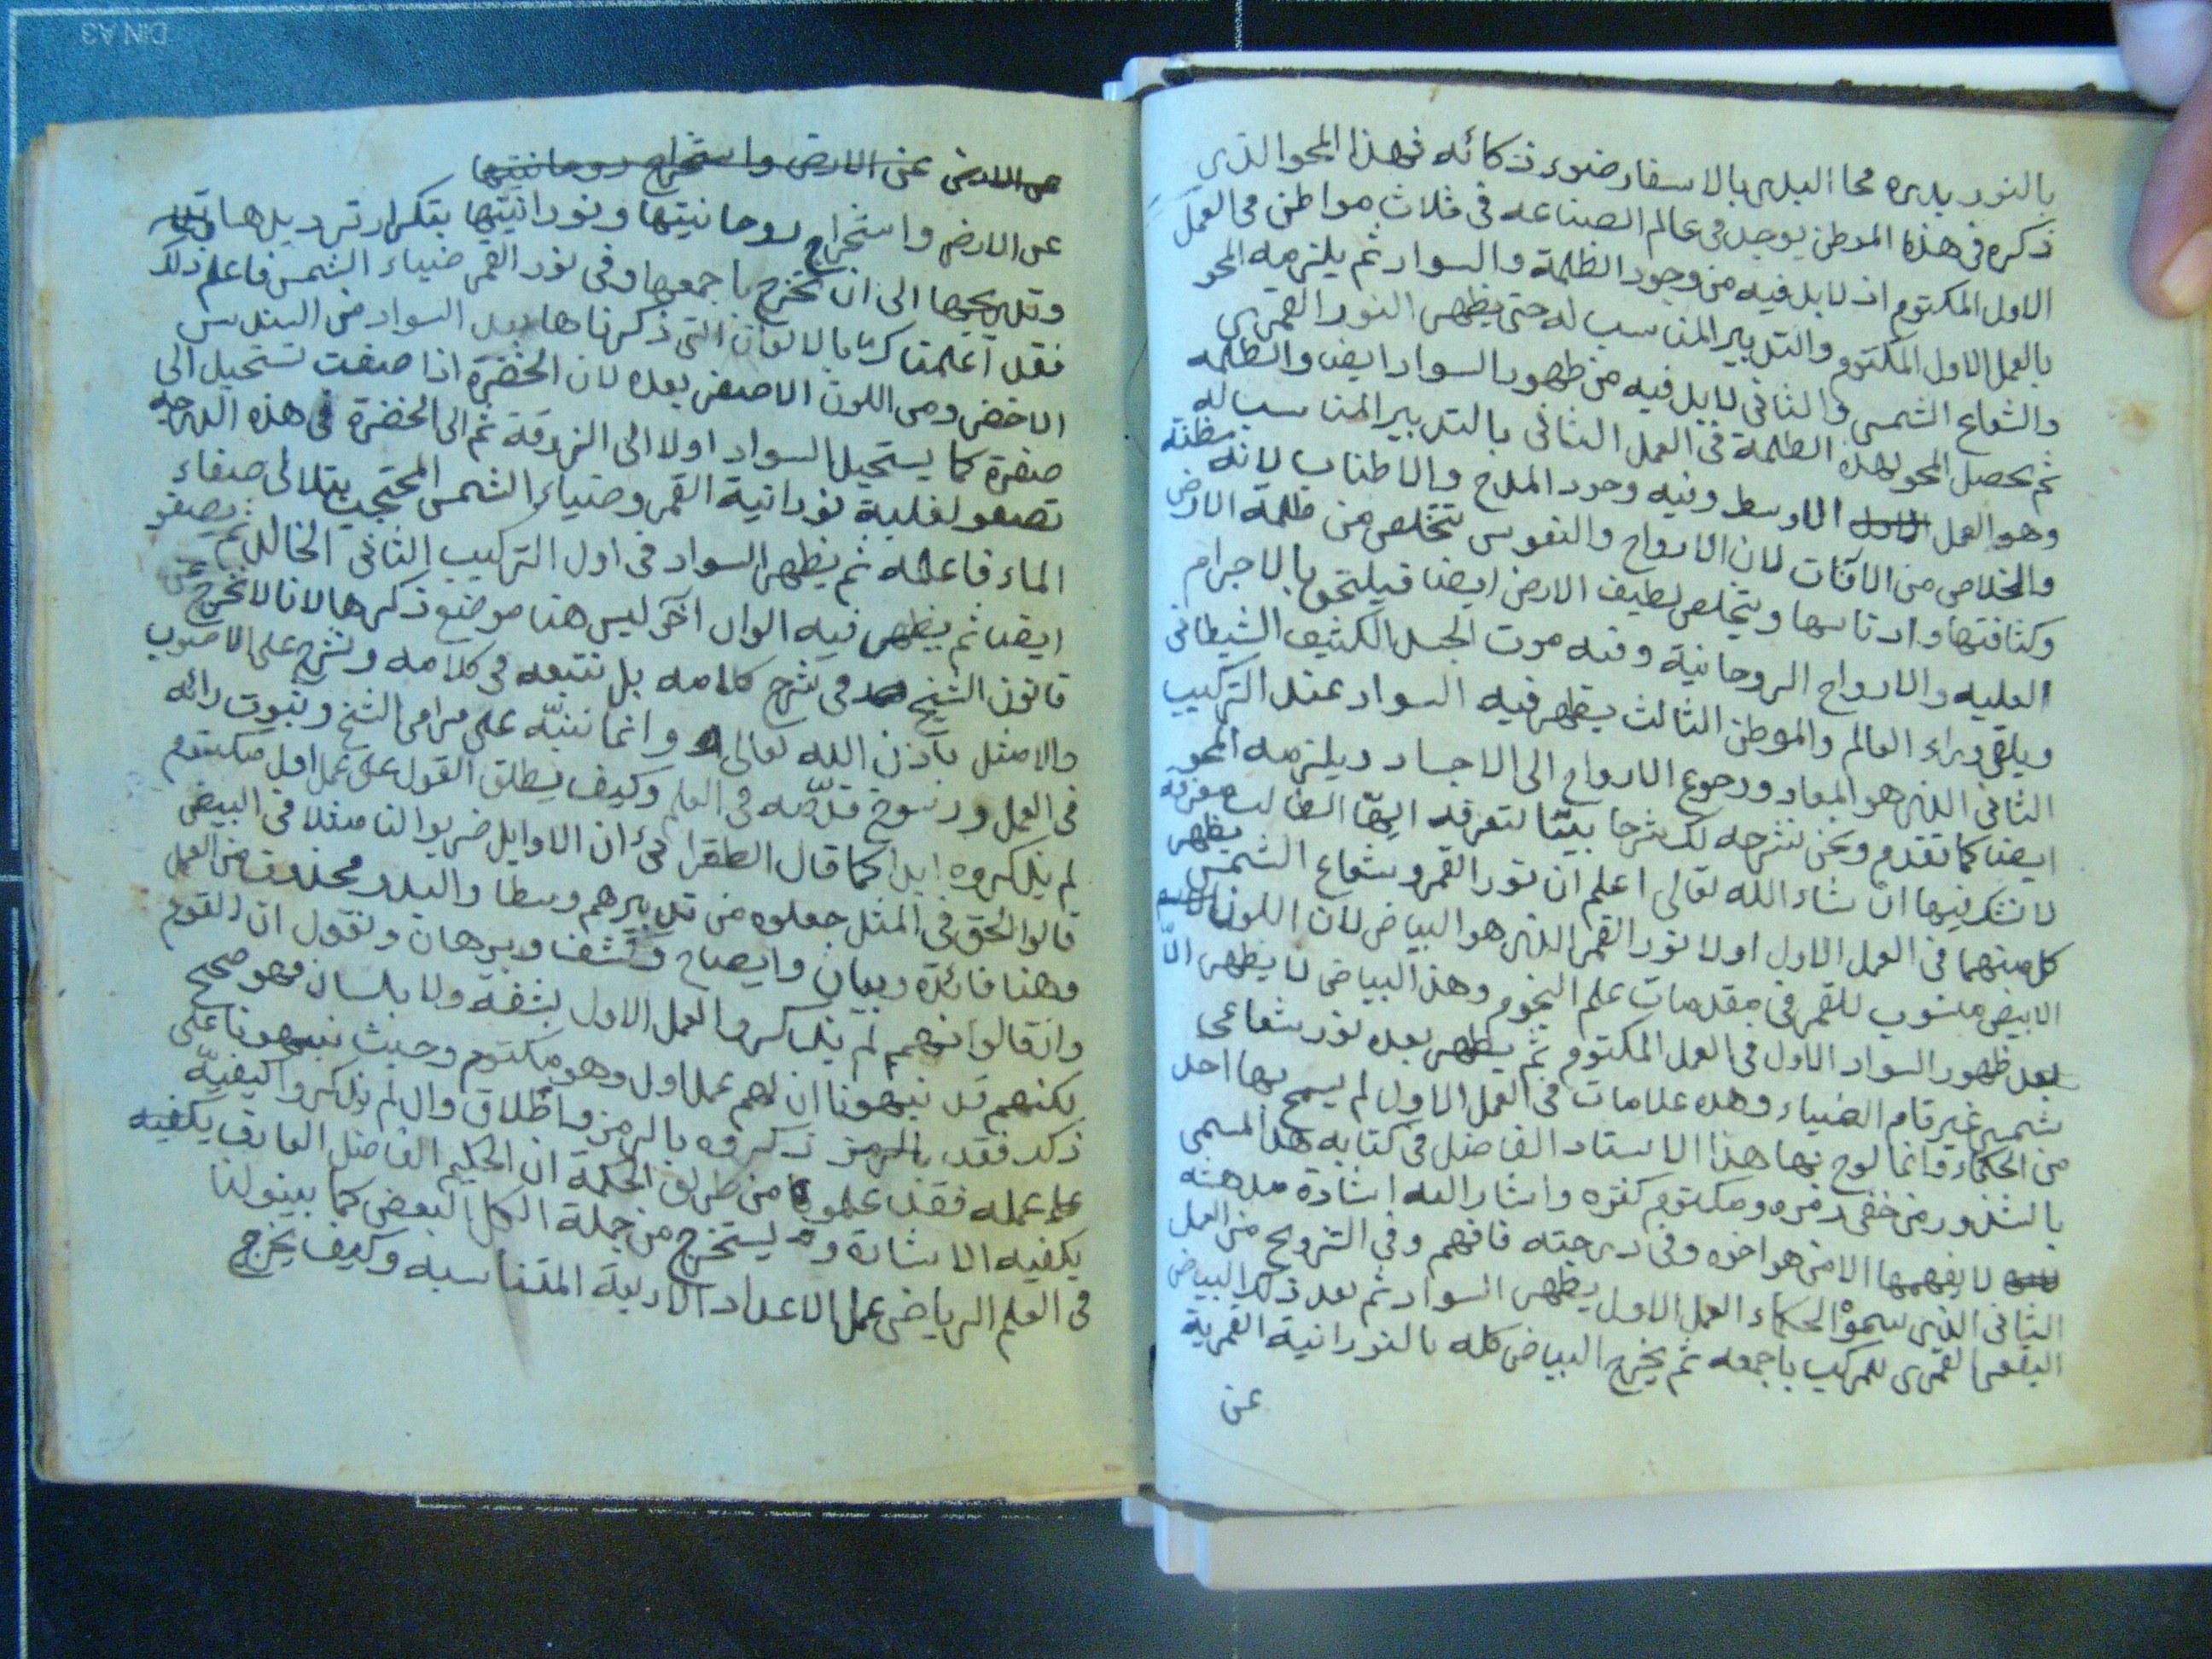 بالنور بدره محا البدر بالاسفار ضوء ذكائه فهذا المحو الذي
ذكره في هذه الموطن يوجد في عالم الصناعه في ثلاث مواطن في العمل
الاول المكتوم اذ لا بد فيه من وجود الظلمة والسواد ثم يلزمه المحو
بالعمل الاول المكتوم والتدبير المناسب له حتى يظهر النور القمري
والشعاع الشمسي والثاني لا بد فيه من ظهور السواد ايضا والظلمه
ثم يحصل المحو لهذه الظلمة في العمل الثاني بالتدبير المناسب له
وهو العمل الاول الاوسط وفيه وجود المدح والاطناب لانه مظنة
والخلاص من الآفات لان الارواح والنفوس تتخلص من ظلمة الارض
وكثافتها وادناسها ويتخلص لطيف الارض ايضا فيلتحق بالاجرام
العليه والارواح الروحانية وفيه موت الجسد الكثيف الشيطاني
ويلقى وراء العالم والموطن الثالث يظهر فيه السواد عند التركيب
الثاني الذي هو المعاد ورجوع الارواح الى الاجساد ويلزمه المحو
ايضا كما تقدم ونحن نشرحه لك شرحا بينا لتعرفه ايها الطالب معرفة
لا تشك فيها ان شاء الله تعالى اعلم ان نور القمر وشعاع الشمس يظهر
كل منهما في العمل الاول اولا نور القمر الذي هو البياض لان اللون
الابيض منسوب للقمر في مقدمات علم النجوم وهذا البياض لا يظهر الا
بعد ظهور السواد الاول في العمل المكتوم ثم يظهر بعده نور شعاعي
شمسي غير تام الضياء وهذه علامات في العمل الاول لم يسمح بها احد
من الحكماء وانما لوح بها هذا الاستاد الفاضل في كتابه هذا المسمى
بالشذور رمز خفى رمزه ومكتوم كنزه واشار اليه اشارة مدهشه
لا يفهمها الا من هو اخوه وفي درجته فافهم وفي التزويج من العمل
الثاني الذي سموه الحكماء العمل الاول يظهر السواد ثم بعد ذلك البياض
القمري للمركب باجمعه ثم يخرج البياض كله بالنورانية القمرية
عن
عن الارض عن الارض واستخراج روحانيتها
عن الارض واستخراج روحانيتها ونورانيتها بتكرار ترديدها
وتدريجها الى ان تخرج باجمعها وفي نور القمر ضياء الشمس فاعلم ذلك
فقد اعلمناك بالالوان التي ذكرناها بعد السواد من السندس
الاخضر ومن اللون الاصفر بعده لان الخضرة اذا صفت تستحيل الى
صفرة كما يستحيل السواد اولا الى الزرقة ثم الى الخضرة في هذه الدرجه
تصفو لغلبة نورانية القمر وضياء الشمس المحتجب بتلالى صفاء
الماء فاعلمه ثم يظهر السواد في اول التركيب الثاني الخالد ثم يصفو
ايضا ثم يظهر فيه الوان اخر ليس هنا موضع ذكرها لانا لا نخرج عن
قانون الشيخ في شرح كلامه بل نتبعه في كلامه ونشرح على الاصوب
والامثل باذن الله تعالى وانما ننبه على مرامي الشيخ وثبوت رائه
في العمل ورسوخ قدمه في العلم وكيف يطلق القول على عمل اول مكتوم
لم يذكروه ابدا كما قال الطغرائي ان الاوايل ضربوا لنا مثلا في البيض
قالوا الحق في المثل جعلوه من تدبيرهم وسطا والبدو محذوف من العمل
وهنا فائدة وبيان وايضاح وكشف وبرهان ونقول ان القوم
وان قالوا انهم لم يذكروا العمل الاول بشفة ولا بلسان فهو صحيح
لكنهم قد نبهونا ان لهم عمل اول وهو مكتوم وحيث نبهونا على
ذلك فقد بالرمز ذكروه بالرمز واطلاق وان لم يذكروا كيفية
عمله فقد علموا من طريق الحكمة ان الحكيم الفاضل العارف يكفيه
يكفيه الاشارة و يستخرج من جملة الكل البعض كما بينوا لنا
في العلم الرياضي عمل الاعداد الاربعة المتناسبه وكيف يخرج